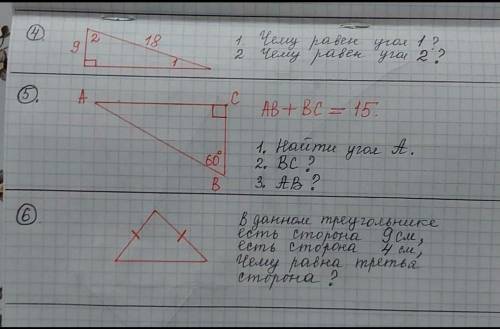 ④ 9 2 18 1
1 Чему равен угол 1?
2 Чему равен угол 2?
⑤. A C
60°
B
AB + BC = 15.
1. Найти угол A.
2. BC?
3. AB?
⑥
В данном треугольнике
есть сторона 9 см,
есть сторона 4 см,
Чему равна третья
сторона?